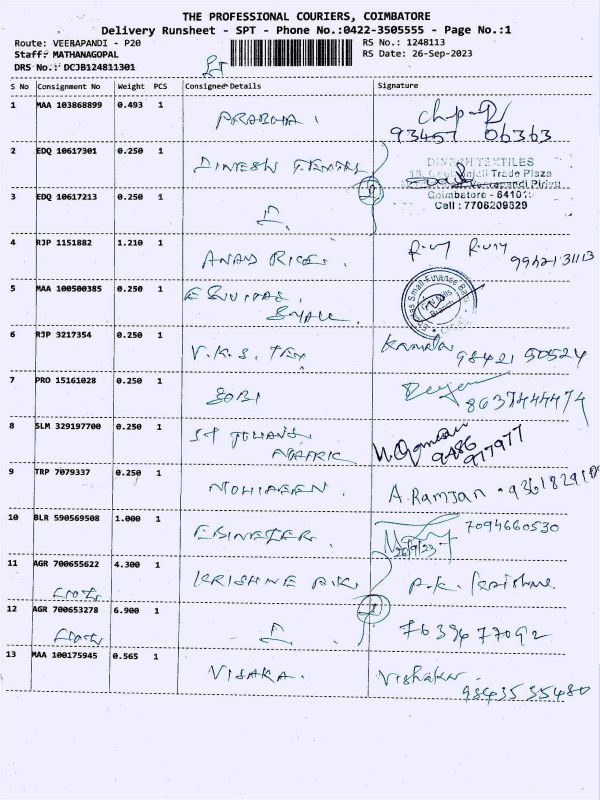 THE PROFESSIONAL COURIERS, COIMBATORE
Delivery Runsheet - SPT - Phone No.:0422-3505555 - Page No.:1
Route: VEERAPANDI - P20 RS No.: 1248113
Staff: MATHANAGOPAL RS Date: 26-Sep-2023
DRS No.: DCJB124811301
S No Consignment No Weight PCS Consignee Details Signature
1 MAA 103868899 0.493 1 PRABHA.
93457 06363
2 EDQ 10617301 0.250 1 DINESH
DINESH TEXTILES
Trade Plaza
Veerapandi Pirivu
Coimbatore - 64101
Cell : 7708209829
3 EDQ 10617213 0.250 1
4 RJP 1151882 1.210 1 ANAND RICE.
5 MAA 100500385 0.250 1
SMALL
Small Finance
6 RJP 3217354 0.250 1 V.K.S. TEX
98421 50524
7 PRO 15161028 0.250 1 GOBI
8637444474
8 SLM 329197700 0.250 1 ST
MATRIC
9486
977977
9 TRP 7079337 0.250 1 MOHIDEEN. A. Ramjan
10 BLR 590569508 1.000 1 EBINEZER. 7094660530
26/9/23
11 AGR 700655622 4.300 1 KRISHNE P.K. P.K. Krishne
12 AGR 700653278 6.900 1 7639677092
13 MAA 100175945 0.565 1 VISAKA. Vishaka
98435 35480